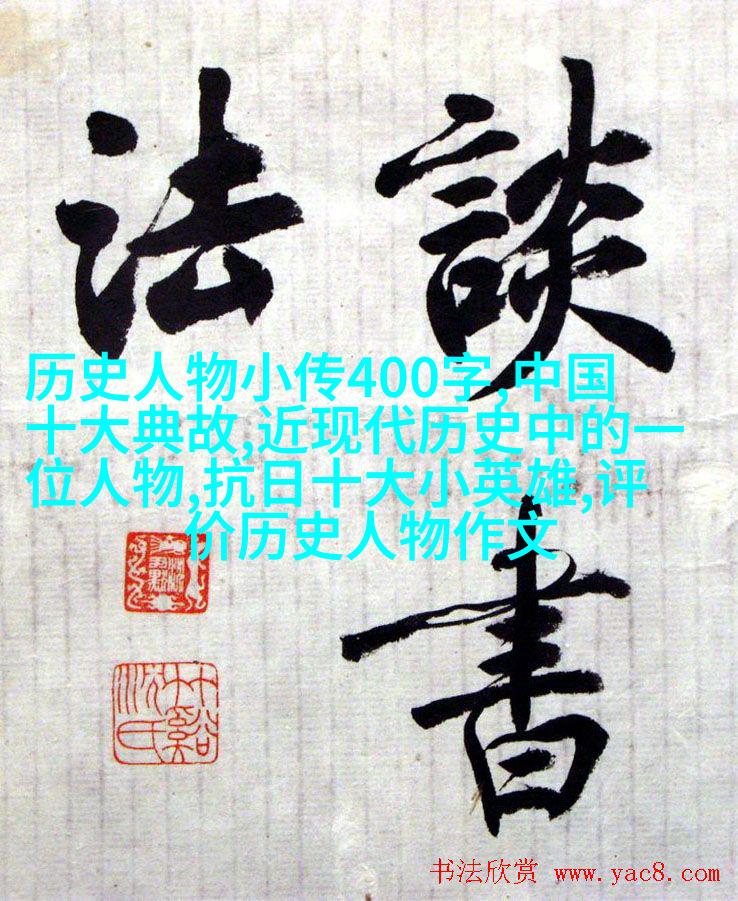 談書
法
历史人物小传400字,中国
十大典故,近现代历史中的一
位人物,抗日十大小英雄,评
价历史人物作文
书法欣赏 www.yac8.com